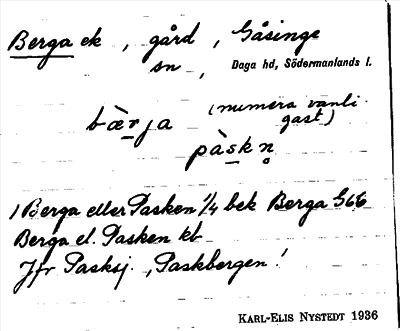 Berga ek , gård , Gåsinge
sn , Daga hd, Södermanlands l.
bæ̀rja (numera vanli-
gast)
pàskn̥
1 Berga eller Pasken 1/4 bek Berga G66
Berga el. Pasken kt
Jfr Pasksj. , Paskbergen !
KARL-ELIS NYSTEDT 1936